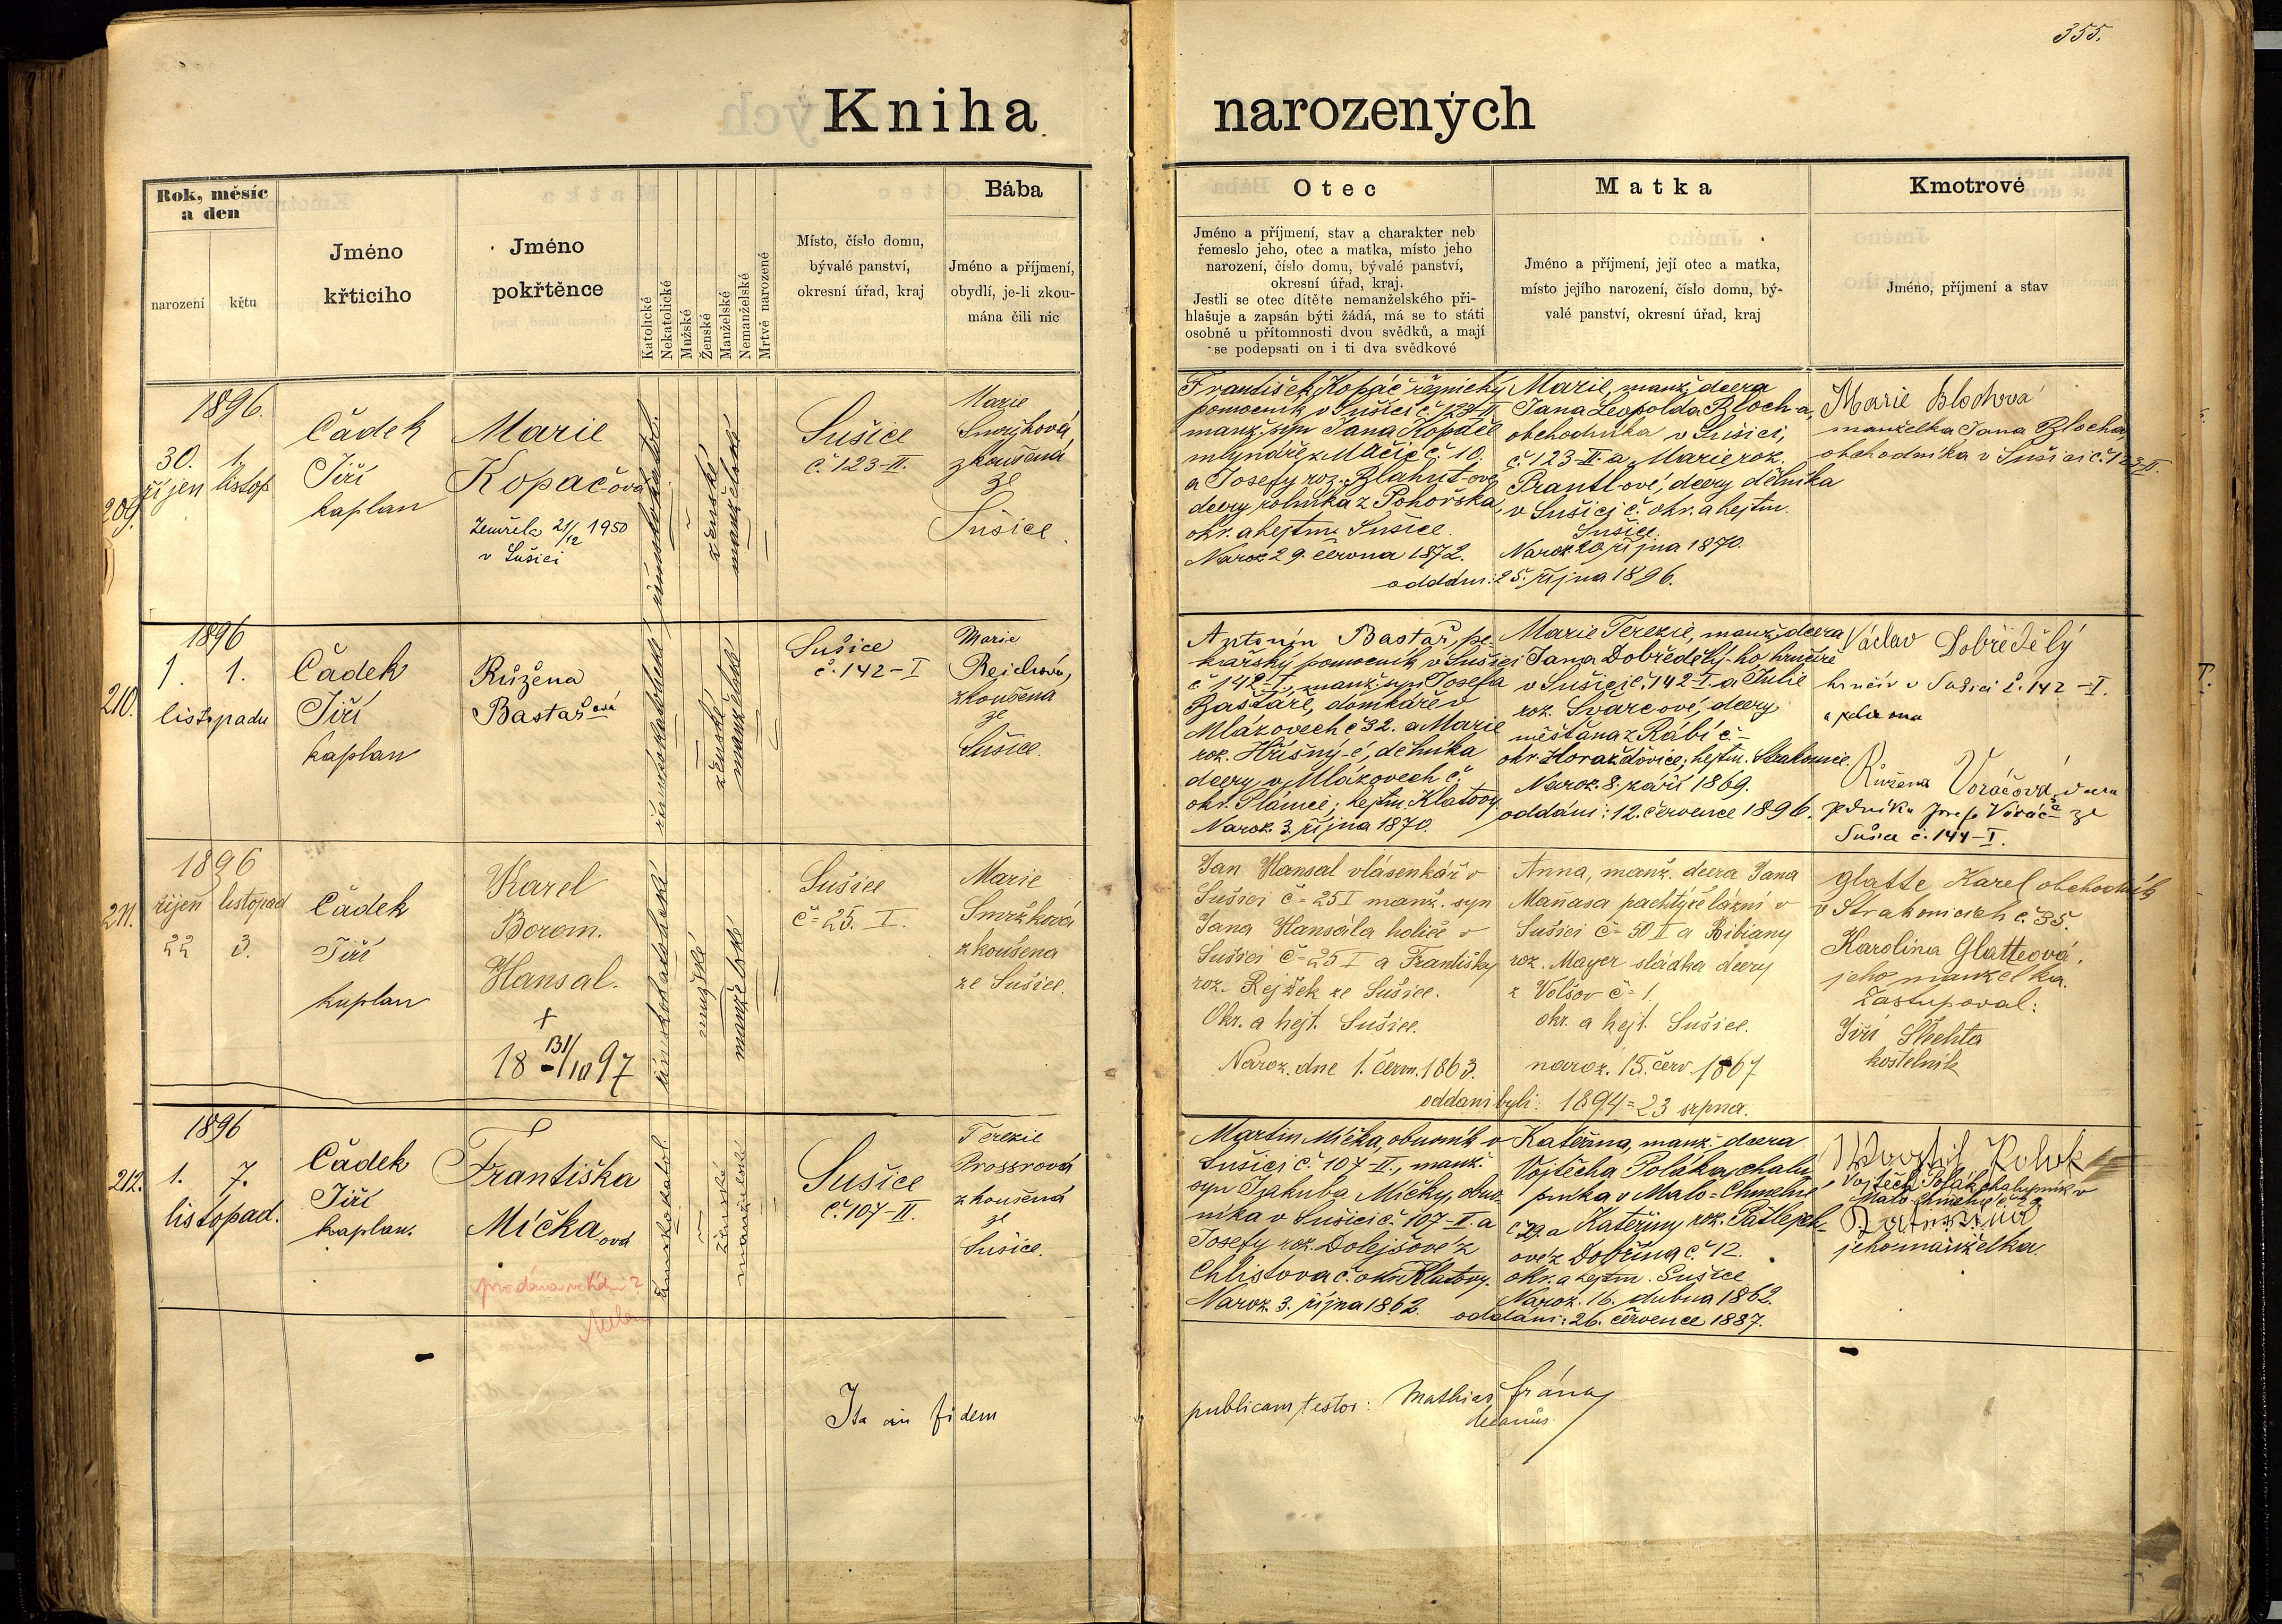 355.
Kniha narozených
Rok, měsíc a den
narození
křtu
Jméno křticiho
Jméno pokřtěnce
Katolické
Nekatolické
Mužské
Ženské
Manželské
Nemanželské
Mrtvě narozené
Místo, číslo domu,
bývalé panství,
okresní úřad, kraj
Bába
Jméno a příjmení,
obydlí, je-li zkou-
mána čili nic
Otec
Jméno a příjmení, stav a charakter neb
řemeslo jeho, otec a matka, místo jeho
narození, číslo domu, bývalé panství,
okresní úřad, kraj.
Jestli se otec dítěte nemanželského při-
hlašuje a zapsán býti žádá, má se to státi
osobně u přítomnosti dvou svědků, a mají
se podepsati on i ti dva svědkové
Matka
Jméno a příjmení, její otec a matka,
místo jejího narození, číslo domu, bý-
valé panství, okresní úřad, kraj
Kmotrové
Jméno, příjmení a stav
209.
1896.
30. 1.
říjen listop
Čádek
Jiří
kaplan
Marie
Kopač-ová
Zemřela 21/12 1950
v Sušici
římskokatol.
ženské
manželské
Sušice
č. 123-II.
Marie
zkoušená
ze
Sušice.
František Kopáč řeznický
pomocník v Sušici č. 123-II
manž. syn Jana Kopáče
mlynáře z Mačic č. 10.
a Josefy roz. Blahut-ové
dcery rolníka z Pohorska,
okr. a hejtm. Sušice.
Naroz. 29. června 1872.
Marie, manž. dcera
Jana Leopolda Bloch-a,
obchodníka v Sušici,
č. 123-II a Marie roz.
Prantl-ové, dcery dělníka
v Sušici č. okr. a hejtm.
Sušice.
Naroz. 20. října 1870.
oddáni: 25. října 1896.
Marie Blochová
manželka Jana Blocha,
obchodníka v Sušici č. 123 II.
210.
1896
1. 1.
listopadu
Čádek
Jiří
kaplan
Růžena
Bastař ová
římskokatolické
ženské
manželské
Sušice
č. 142-I
Marie
Rejchová,
zkoušená
ze
Sušice.
Antonín Bastař, pe-
kařský pomocník v Sušici
č. 142-I., manž. syn Josefa
Bastaře, domkáře v
Mlázovech č 32. a Marie
roz. Hříšný-é, dělníka
dcery, v Mlázovech č.
okr. Plánice; hejtm. Klatovy.
Naroz. 3. října 1870.
Marie Terezie, manž. dcera
Jana Dobředělý-ho hrnčíře
v Sušici č. 142-I. a Julie
roz. Švarcové, dcery
měšťana z Rábí č.-
okr. Horažďovice; hejtm. Strakonice.
Naroz. 8. září 1869.
oddáni: 12. července 1896.
Václav Dobředělý
hrnčíř v Sušici č. 142-I.
Růžena Voráčová, dcera
Josefa Voráč-a ze
Sušice č. 144-I.
211.
1896
říjen listopad
22 3.
Čádek
Jiří
kaplan
Karel
Borom.
Hansal.
+
18 131/10 97
římskokatolické
mužské
manželské
Sušice
č= 25. I.
Marie
Smržková
zkoušena
ze Sušice.
Jan Hansal vlásenkář v
Sušici č= 25 I manž. syn
Jana Hansála holiče v
Sušici č= 25 I a Františky
roz. Rejžek ze Sušice.
Okr. a hejt. Sušice.
Naroz. dne 1. červn. 1863.
Anna, manž. dcera Jana
Maňasa pachtýře lázní v
Sušici č= 50 II a Bibiany
roz. Mayer sládka dcery
z Volšov č= 1.
okr. a hejt. Sušice.
naroz. 15. červ. 1867
oddani byli: 1894 = 23 srpna.
Glatte Karel obchodník
v Strakonicích č. 35.
Karolina Glatteová,
jeho manželka.
Zastupoval:
Jiří Šlechta
kostelník
212.
1896
1. 7.
listopad.
Čádek
Jiří
kaplan.
Františka
Míčka ová
římskokatol.
ženské
manželské
Sušice
č. 107-II.
Terezie
Prossrová
zkoušená
ze
Sušice.
Martin Míčka, obuvník v
Sušici č. 107-II., manž.
syn Jakuba Míčky, obuv-
níka v Sušici č. 107-II. a
Josefy roz. Dolejšové z
Chlistova č. okr. Klatovy.
Naroz. 3. října 1862.
Kateřina, manž. dcera
Vojtěcha Poláka, chalu-
pníka v Malo-Chmelné
č 29. a Kateřiny roz.
ové z Dobřína č. 12.
okr. a hejtm. Sušice
Naroz. 16. dubna 1862.
oddáni: 26. července 1887.
Vojtěch Polák chalupník v
Malo Chmelné
jeho manželka.
Ita in fidem publicam testor: Mathias
decanus.